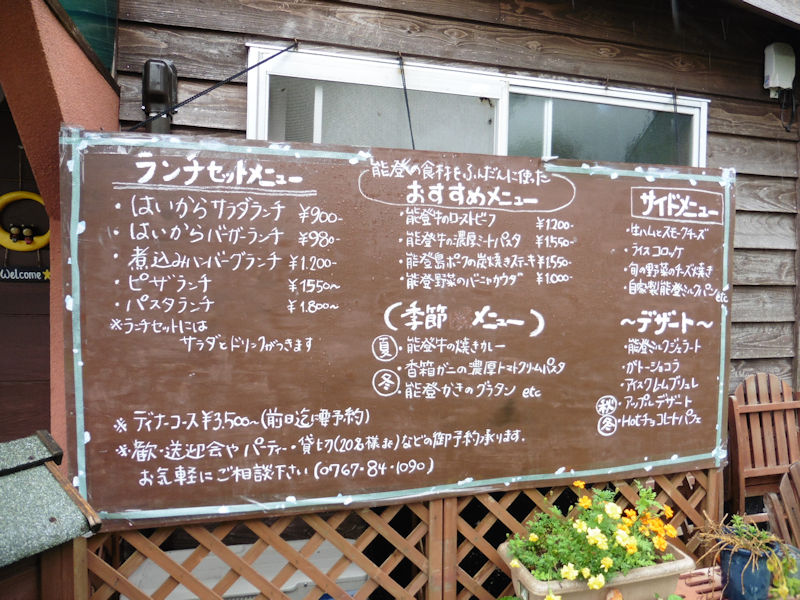 Welcome
ランチセットメニュー
・はいからサラダランチ ¥900-
・はいからバーガーランチ ¥980-
・煮込みハンバーグランチ ¥1.200-
・ピザランチ ¥1550~
・パスタランチ ¥1.800~
※ランチセットには
サラダとドリンクがつきます
※ディナーコース¥3,500~(前日迄に要予約)
※歓・送迎会やパーティー・貸し切(20名様まで)などの御予約承ります.
お気軽にご相談下さい(0767-84-1090)
能登の食材をふんだんに使った
おすすめメニュー
・能登牛のローストビーフ ¥1.200-
・能登牛の濃厚ミートパスタ ¥1.550-
・能登島ポークの炭焼きステーキ ¥1.550-
・能登野菜のバーニャカウダ ¥1.000-
(季節メニュー)
夏・能登牛の焼きカレー
冬・香箱ガニの濃厚トマトクリームパスタ
・能登かきのグラタン etc
サイドメニュー
・生ハムとスモークチーズ
・ライスコロッケ
・旬の野菜のチーズ焼き
・自家製能登ミルクパン etc
~デザート~
・能登ミルクジェラート
・ガトーショコラ
・アイスクレームブリュレ
秋・アップルデザート
冬・Hotチョコレートパフェ